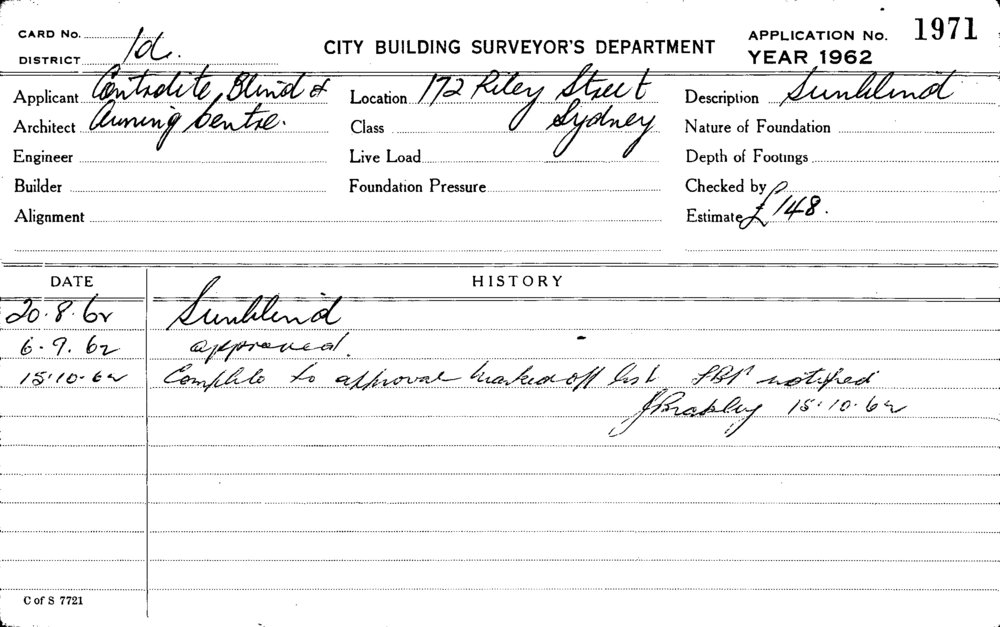 CARD No.
DISTRICT 1d.
CITY BUILDING SURVEYOR'S DEPARTMENT
APPLICATION No. 1971
YEAR 1962
Applicant Controlite, Blind &
Architect Awning Centre.
Engineer
Builder
Alignment
Location 172 Riley Street
Class Sydney
Live Load
Foundation Pressure
Description Sunblind
Nature of Foundation
Depth of Footings
Checked by
Estimate £148.
DATE HISTORY
20.8.62 Sunblind
6.9.62 approved.
15.10.62 Complete to approval marked off list notified
15.10.62
C of S 7721